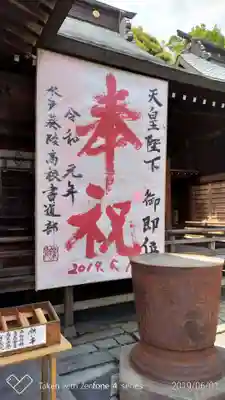 天皇陛下 御即位
奉祝
令和 元年
水戸葵陵高校書道部
2019.5.1
Taken with Zenfone 4 series
2019/06/01